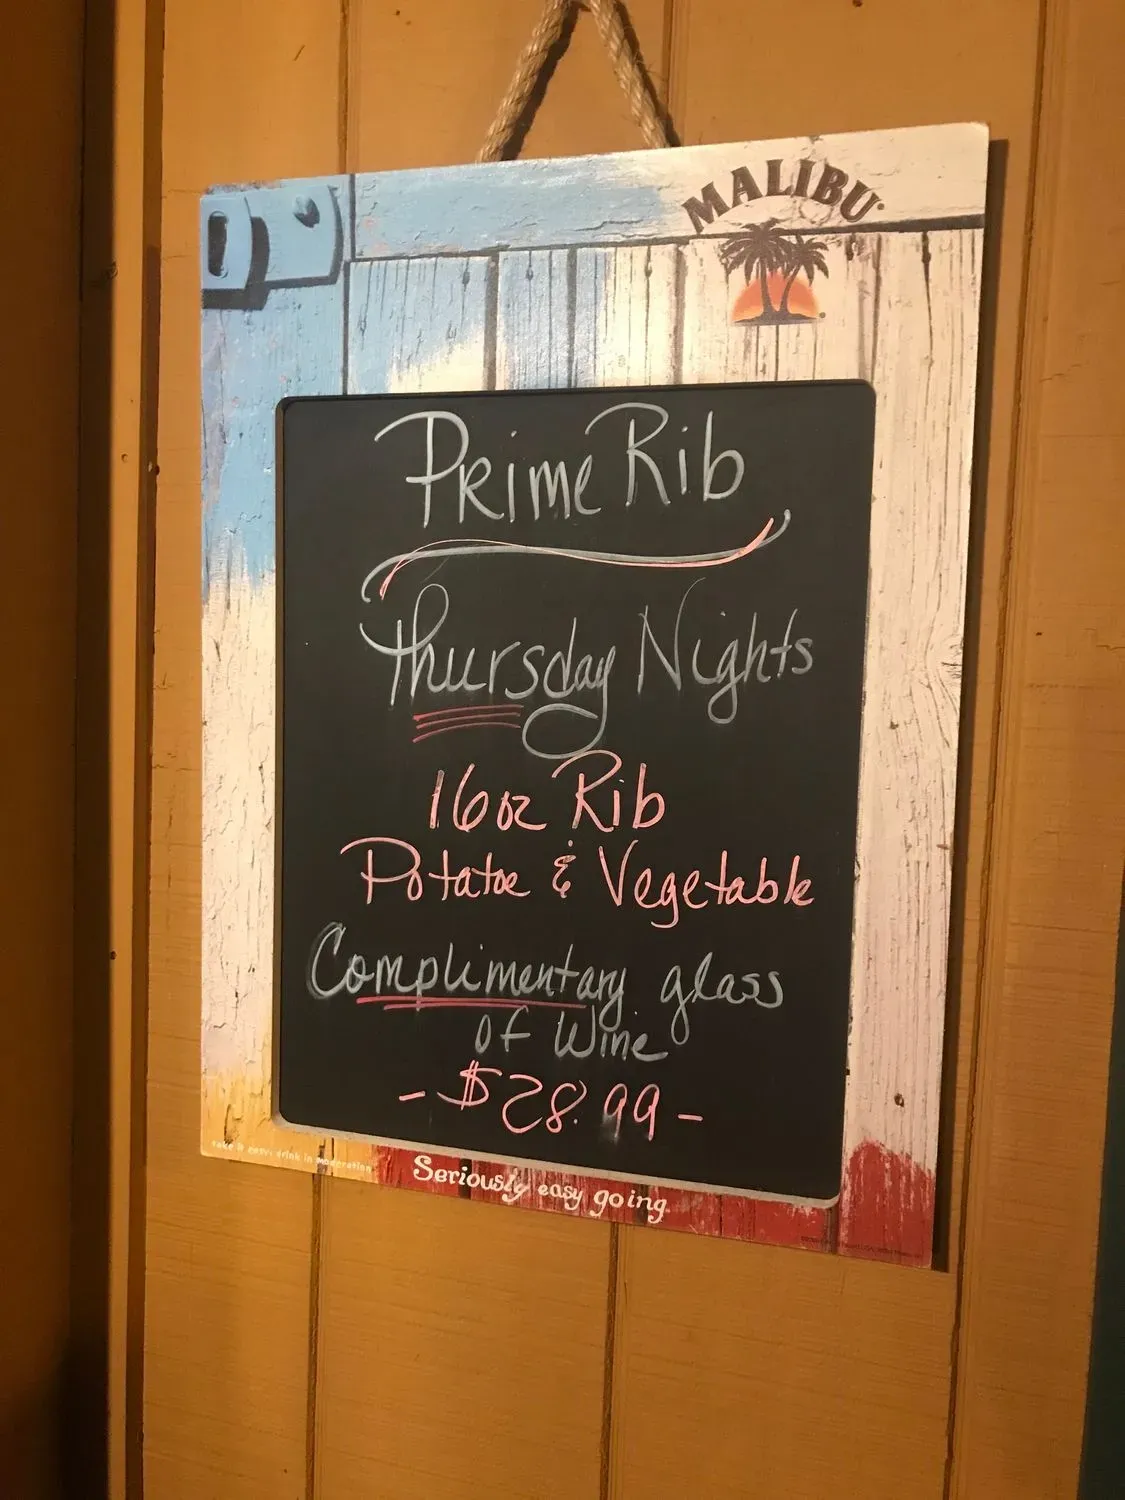 MALIBU
Prime Rib
Thursday Nights
16oz Rib
Potatoe & Vegetable
Complimentary glass
of Wine
- $28.99 -
take it easy. drink in moderation
Seriously easy going.